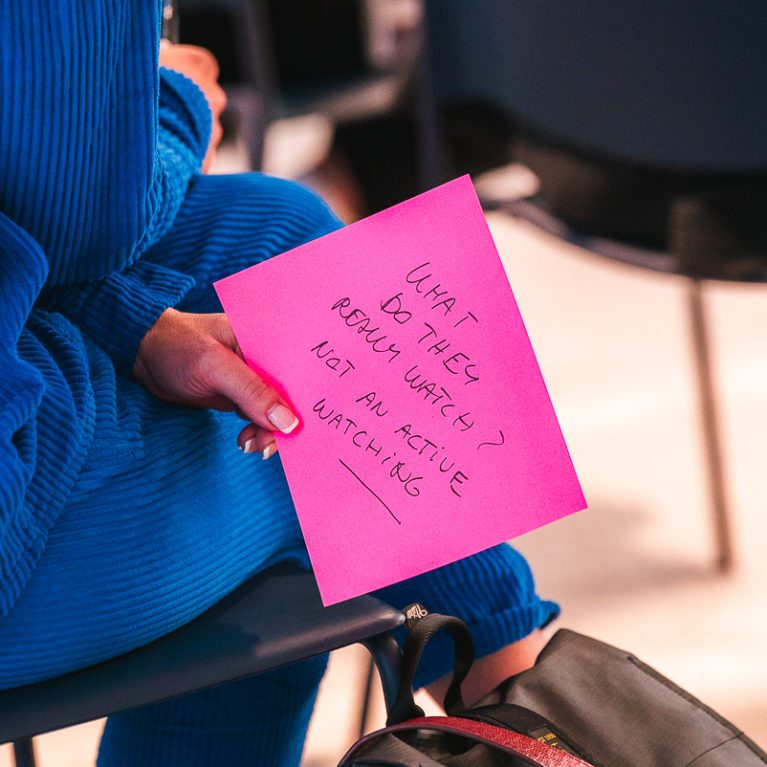 WHAT
DO THEY
REALLY WATCH?
NOT AN ACTIVE
WATCHING